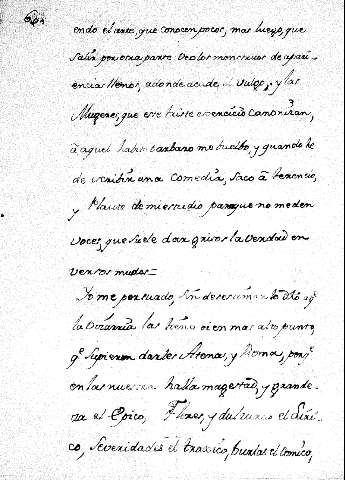 endo el arte, que conocen pocos, mas luego, que
salir por otra parte veo los monstruos de apari-
encia llenos, adonde acude el vulgo, y las
Mugeres, que este triste exercicio canonizan,
à aquel habito barbaro me buelbo, y quando he
de escribir una Comedia, saco à terencio,
y Plauto de mi estudio para que no me den
voces, que suele dar gritos la verdad en
versos mudos =
Yo me persuado, sin desestimar
la bizarria las tiene oi en mas alto punto,
q̃ supieron darles Atenas, y Roma, porq̃
en las nuestras halla magestad, y grande-
za el Epico, Flores, y dulzuras el Liri-
co, severidades el traxico, burlas el comico,